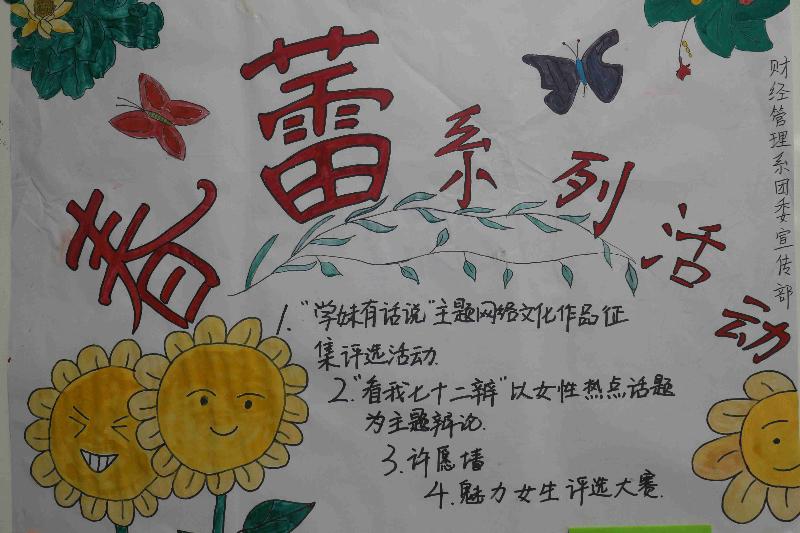 春蕾系列活动
财经管理系团委宣传部
1."学妹有话说"主题网络文化作品征
集评选活动.
2."看我七十二辩"以女性热点话题
为主题辩论.
3.许愿墙
4.魅力女生评选大赛.